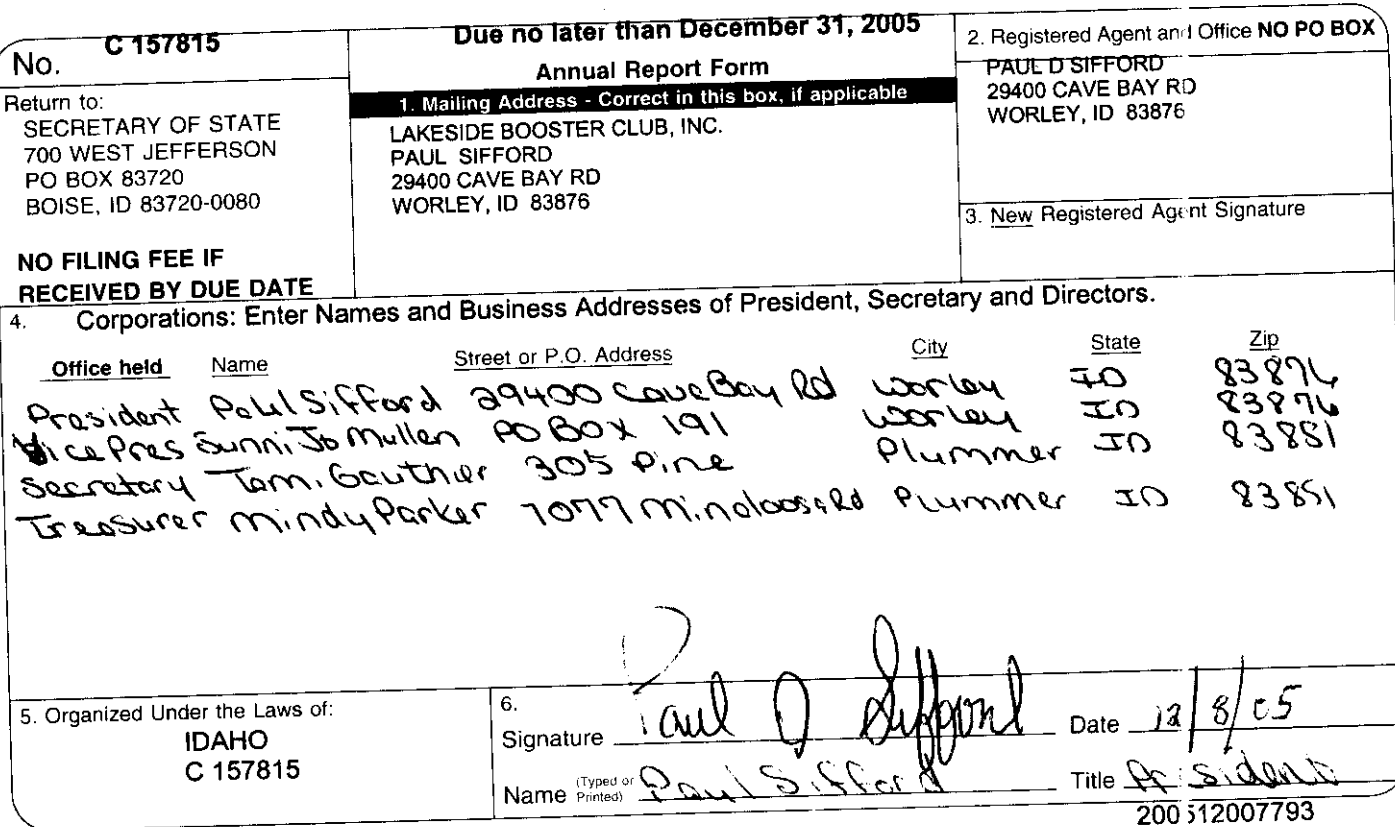 No. C 157815
Due no later than December 31, 2005
Annual Report Form
Return to:
SECRETARY OF STATE
700 WEST JEFFERSON
PO BOX 83720
BOISE, ID 83720-0080
NO FILING FEE IF
RECEIVED BY DUE DATE
1. Mailing Address - Correct in this box, if applicable
LAKESIDE BOOSTER CLUB, INC.
PAUL SIFFORD
29400 CAVE BAY RD
WORLEY, ID 83876
2. Registered Agent and Office NO PO BOX
PAUL D SIFFORD
29400 CAVE BAY RD
WORLEY, ID 83876
3. New Registered Agent Signature
4. Corporations: Enter Names and Business Addresses of President, Secretary and Directors.
Office held Name Street or P.O. Address City State Zip
President Paul Sifford 29400 Cave Bay Rd Worley ID 83876
Vice Pres Sunni Jo Mullen PO BOX 191 Worley ID 83876
Secretary Tami Gauthier 305 Pine Plummer ID 83851
Treasurer Mindy Parker Rd Plummer ID 83851
5. Organized Under the Laws of:
IDAHO
C 157815
6.
Signature Paul D Sifford Date 12/8/05
Name (Typed or Printed) Paul Sifford Title President
200512007793